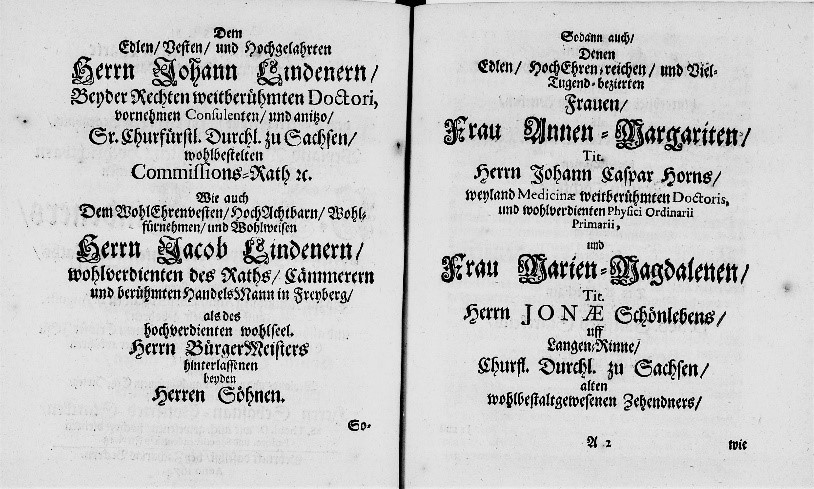 Dem
Edlen/ Vesten/ und Hochgelahrten
Herrn Johann Lindenern/
Beyder Rechten weitberühmten Doctori,
vornehmen Consulenten/ und anitzo/
Sr. Churfürstl. Durchl. zu Sachsen/
wohlbestelten
Commissions-Rath ꝛc.
Wie auch
Dem WohlEhrenvesten/ HochAchtbarn/ Wohl-
fürnehmen/ und Wohlweisen
Herrn Jacob Lindenern/
wohlverdienten des Raths/ Cämmerern
und berühmten HandelsMann in Freyberg/
als des
hochverdienten wohlseel.
Herrn BürgerMeisters
hinterlassenen
beyden
Herren Söhnen.
So-
Sodann auch/
Denen
Edlen/ HochEhren-reichen/ und Viel-
Tugend-bezierten
Frauen/
Frau Annen-Margariten/
Tit.
Herrn Johann Caspar Horns/
weyland Medicinæ weitberühmten Doctoris,
und wohlverdienten Physici Ordinarii
Primarii,
und
Frau Marien-Magdalenen/
Tit.
Herrn JONÆ Schönlebens/
uff
Langen-Rinne/
Churfl. Durchl. zu Sachsen/
alten
wohlbestaltgewesenen Zehendners/
A 2
wie